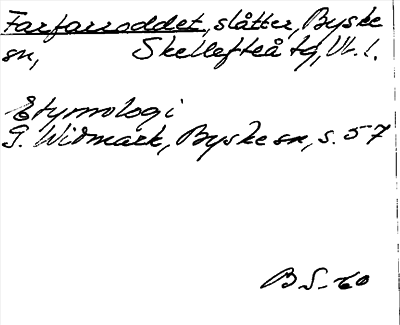 Farfarroddet, slåtter, Byske
sn, Skellefteå tg, Vb. l.
Etymologi
G. Widmark, Byske sn, s. 57
B S-60